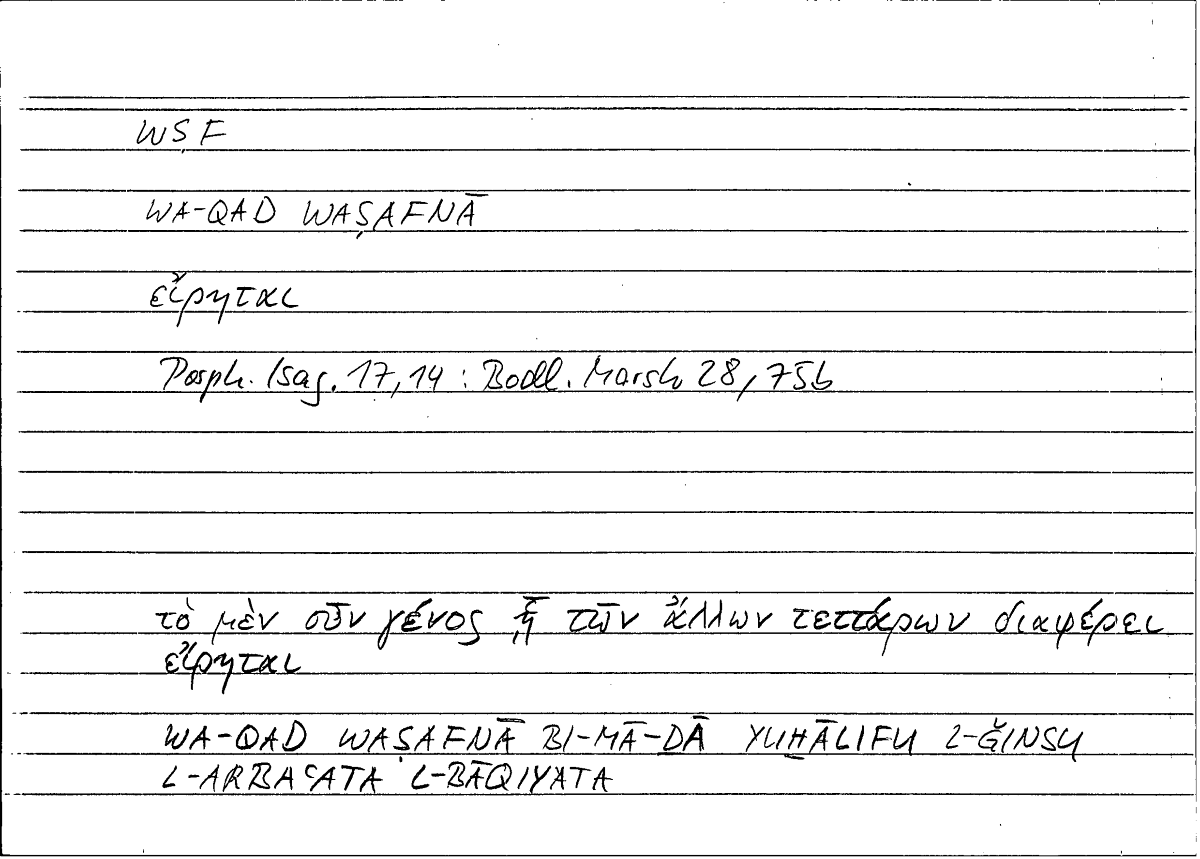 WṢF
WA-QAD WAṢAFNĀ
εἴρηται
Porph. Isag. 17,14 : Bodl. Marsh 28, 75b
τὸ μὲν οὖν γένος ᾗ τῶν ἄλλων τεττάρων διαφέρει
εἴρηται
WA-QAD WAṢAFNĀ BI-MĀ-ḎĀ YUḪĀLIFU L-ǦINSU
L-ARBAʿATA L-BĀQIYATA